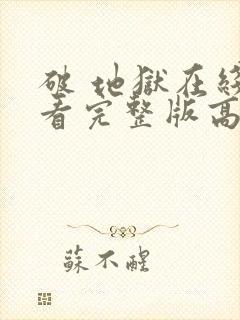 破 地獄在
看完整版高
蘇不醒